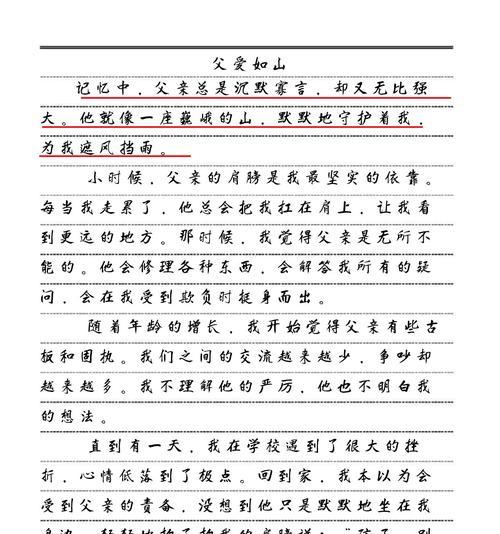 父爱如山
记忆中，父亲总是沉默寡言，却又无比强
大。他就像一座巍峨的山，默默地守护着我，
为我遮风挡雨。
小时候，父亲的肩膀是我最坚实的依靠。
每当我走累了，他总会把我扛在肩上，让我看
到更远的地方。那时候，我觉得父亲是无所不
能的。他会修理各种东西，会解答我所有的疑
问，会在我受到欺负时挺身而出。
随着年龄的增长，我开始觉得父亲有些古
板和固执。我们之间的交流越来越少，争吵却
越来越多。我不理解他的严厉，他也不明白我
的想法。
直到有一天，我在学校遇到了很大的挫
折，心情低落到了极点。回到家，我本以为会
受到父亲的责备，没想到他只是默默地坐在我